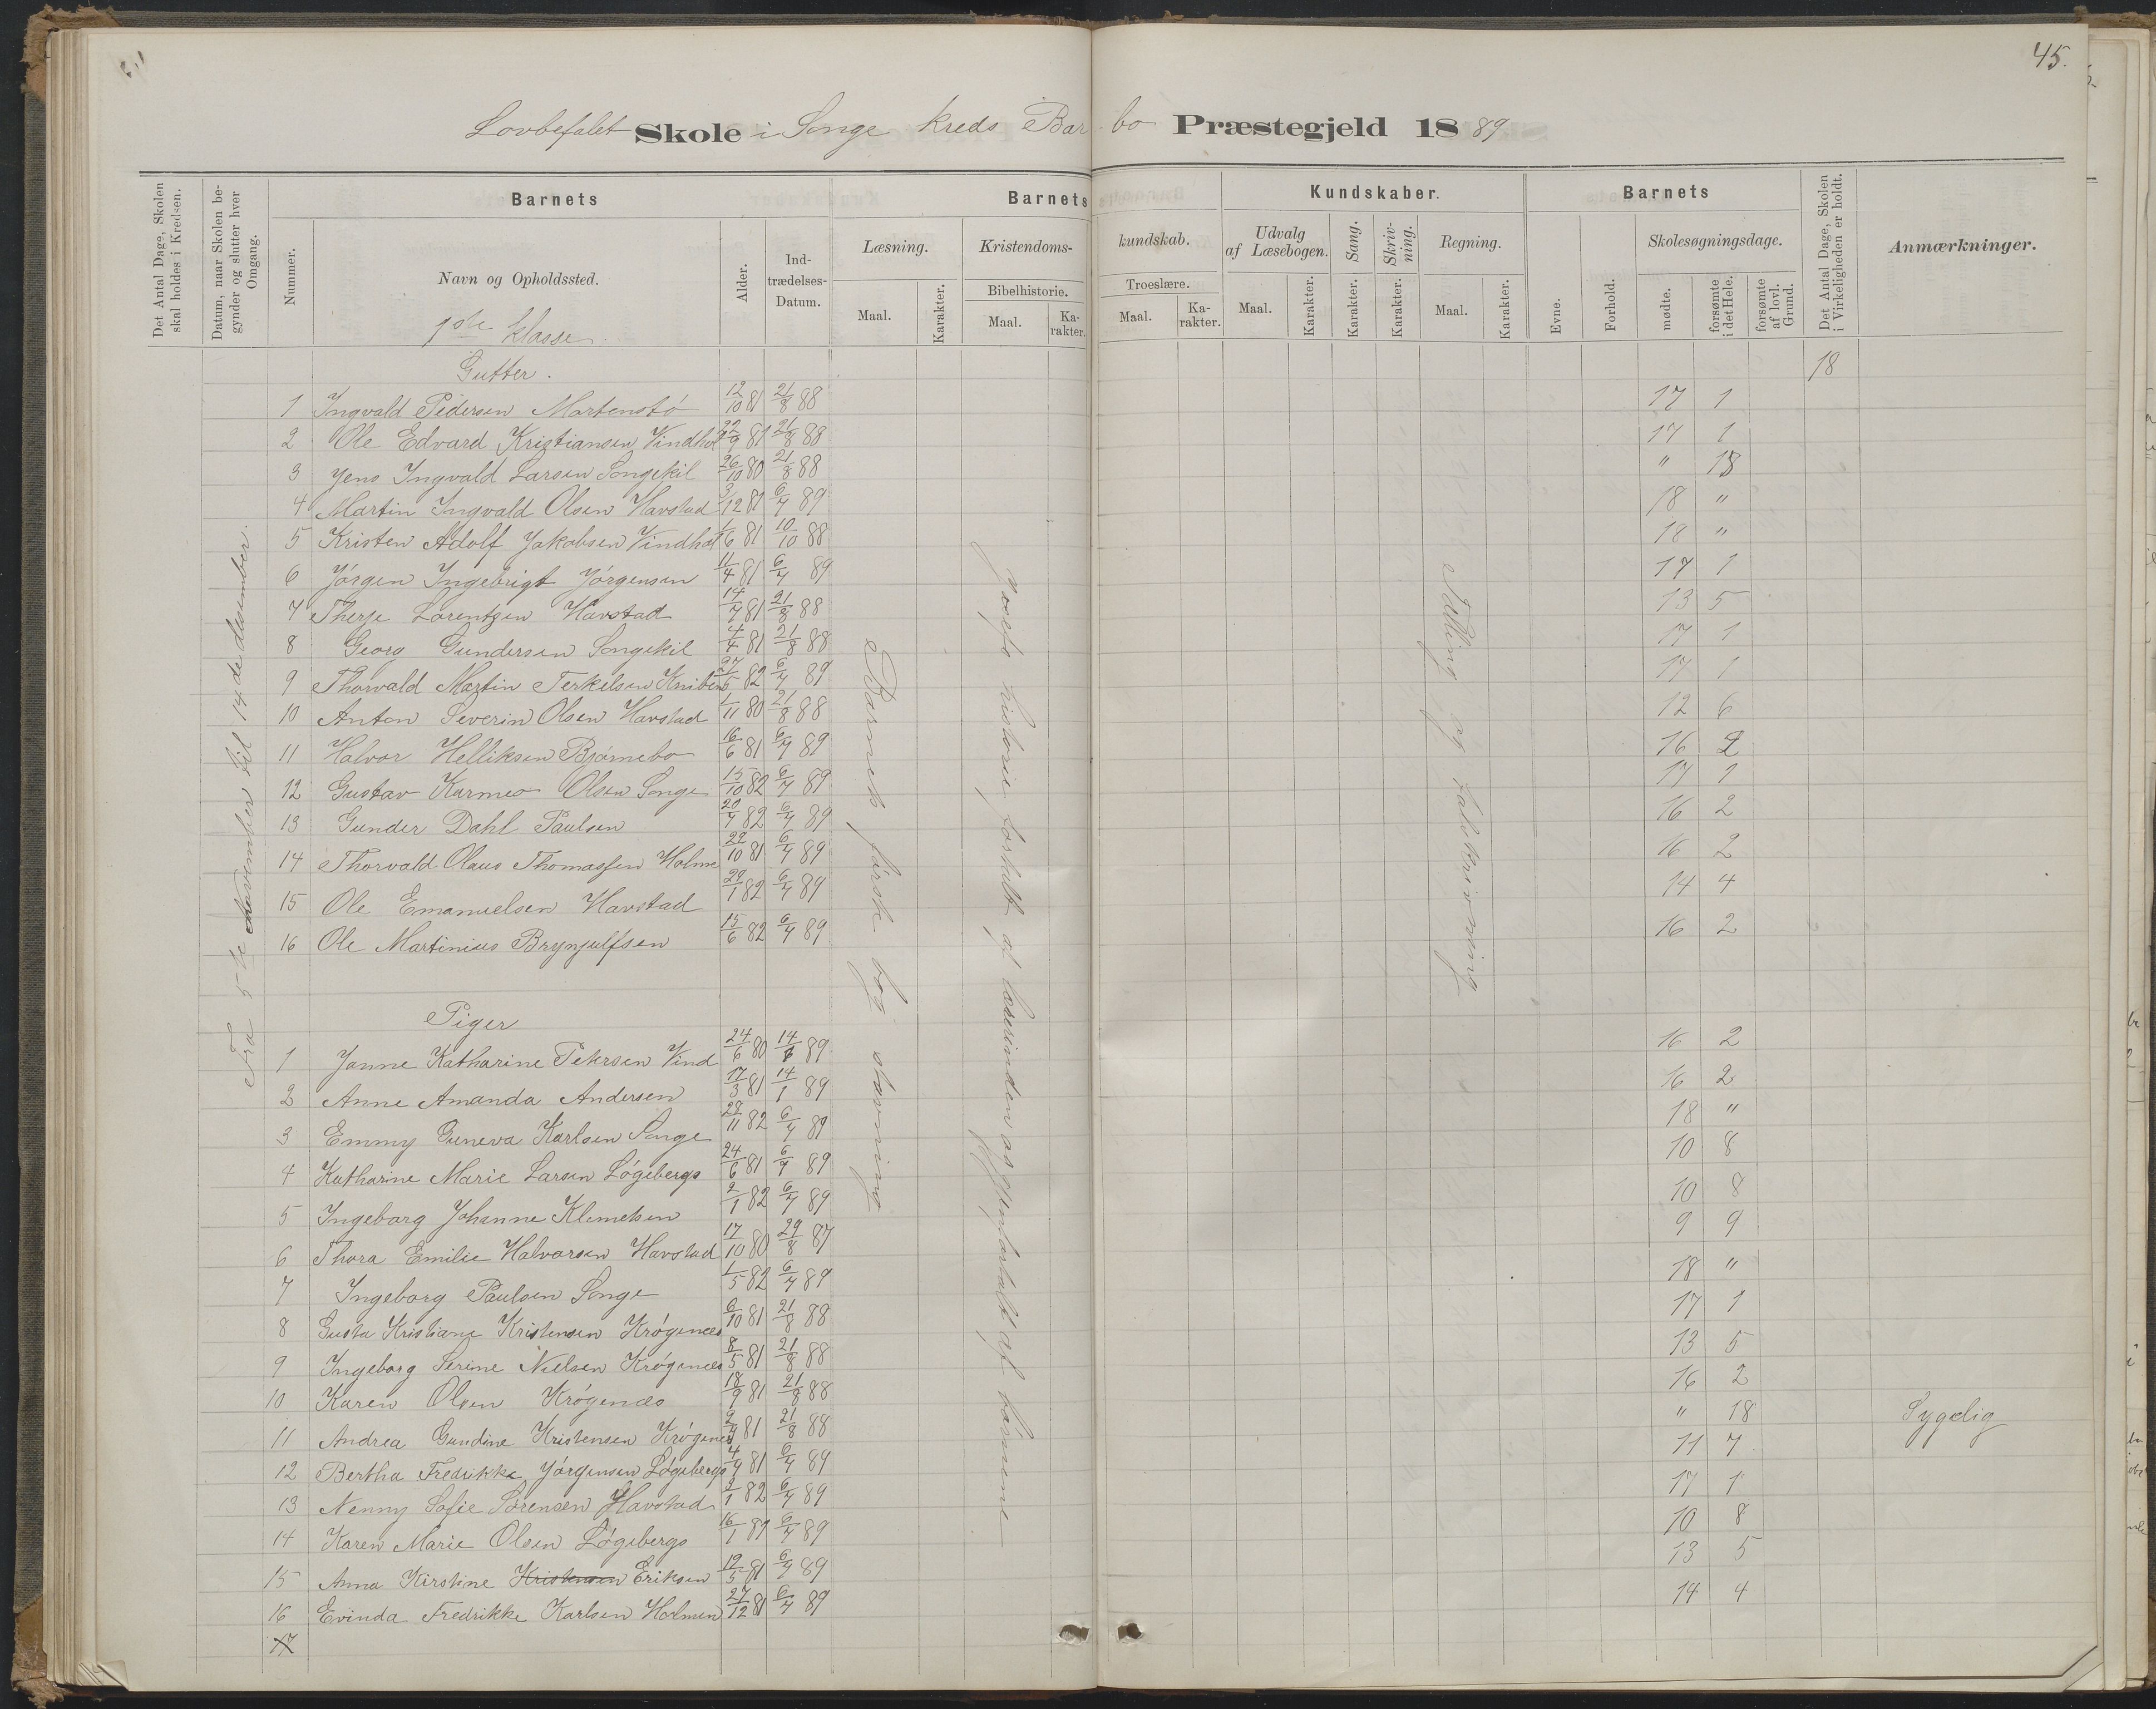 45.
Lovbefalet Skole i Songe kreds i Barbo Præstegjeld 1889
Det Antal Dage, Skolen skal holdes i Kredsen.
Datum, naar Skolen begynder og slutter hver Omgang.
Barnets
Nummer.
Navn og Opholdssted.
Alder.
Indtrædelses-Datum.
Barnets Kundskaber.
Læsning.
Maal.
Karakter.
Kristendomskundskab.
Bibelhistorie.
Maal.
Karakter.
Troeslære.
Maal.
Karakter.
Udvalg af Læsebogen.
Maal.
Karakter.
Sang.
Karakter.
Skrivning.
Karakter.
Regning.
Maal.
Karakter.
Barnets
Evne.
Forhold.
Skolesøgningsdage.
mødte.
forsømte i det Hele.
forsømte af lovl. Grund.
Det Antal Dage, Skolen i Virkeligheden er holdt.
Anmærkninger.
1ste klasse.
Gutter.
18
1 Ingvald Pedersen Martensbö 12/10 81 21/8 88 17 1
2 Ole Edvard Kristiansen Vindhol 22/9 81 21/8 88 17 1
3 Jens Ingvald Larsen Songekil 26/10 80 21/8 88 " 18
4 Martin Ingvald Olsen Havstad 3/12 81 6/4 89 18 "
5 Kristen Adolf Jakobsen Vindhol 1/6 81 10/10 88 18 "
6 Jörgen Ingebrigt Jörgensen 11/4 81 6/4 89 17 1
7 Therje Lorentzen Havstad 14/7 81 21/8 88 13 5
8 Georg Gundersen Songekil 4/4 81 21/8 88 17 1
9 Thorvald Martin Terkelsen 27/5 82 6/4 89 17 1
10 Anton Severin Olsen Havstad 1/11 80 21/8 88 12 6
11 Halvor Helliksen Bjørnebo 16/6 81 6/4 89 16 2
12 Gustav Olsen Songe 15/10 82 6/4 89 17 1
13 Gunder Dahl Paulsen 20/7 82 6/4 89 16 2
14 Thorvald Olaus Thomassen Holme 22/10 81 6/4 89 16 2
15 Ole Emanuelsen Havstad 29/1 82 6/4 89 14 4
16 Ole Martinius Brynjulfsen 15/6 82 6/4 89 16 2
Piger
1 Janne Katharine Petersen Vind 24/6 80 14/8 89 16 2
2 Anne Amanda Andersen 17/3 81 14/1 89 16 2
3 Emmy Guneva Karlsen Songe 28/11 82 6/4 89 18 "
4 Katharine Marie Larsen Lögebergs 24/6 81 6/4 89 10 8
5 Ingeborg Johanne Klemetsen 2/1 82 6/4 89 10 8
6 Thora Emilie Halvorsen Havstad 17/10 80 29/8 87 9 9
7 Ingeborg Paulsen Songe 1/5 82 6/4 89 18 "
8 Gusta Kristiane Kristensen Krögenæs 6/10 81 21/8 88 17 1
9 Ingeborg Serine Nielsen Krögenæs 8/5 81 21/8 88 13 5
10 Karen Olsen Krögenæs 18/9 81 21/8 88 16 2
11 Andrea Gundine Kristensen Krögenes 81 21/8 88 " 18 Sygelig
12 Bertha Fredrikke Jörgensen Lögebergs 4/4 81 6/4 89 11 7
13 Nenny Sofie Sørensen Havstad 82 6/4 89 17 1
14 Karen Marie Olsen Lögebergs 16/1 6/4 89 10 8
15 Anna Kirstine Kristensen Eriksen 19/5 81 6/4 89 13 5
16 Evinda Fredrikke Karlsen Holmen 27/12 81 6/4 89 14 4
17
Fra 5te november til 14de desember.
Barnets første bog stavning
historie fortalt af lærerinden og gjenfortalt af børnene
Tælling og talskrivning